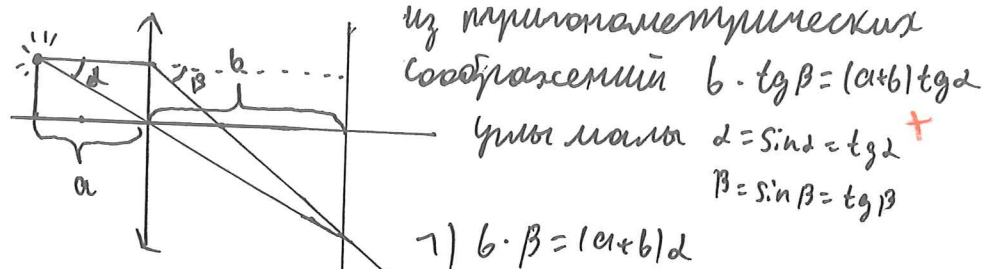 из тригонометрических
соображений b · tgβ = (a+b) tgα
углы малы α = sinα = tgα +
β = sinβ = tgβ
1) b · β = (a+b) α
α
β
b
a